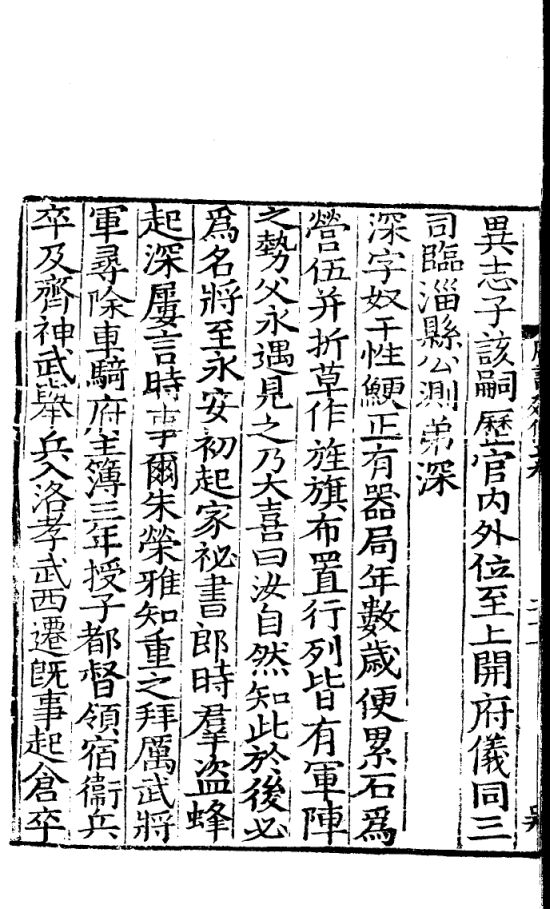 異志子該嗣歷官内外位至上開府儀同三
司臨淄縣公測弟深
深字奴干性鯁正有器局年數歳便累石爲
營伍并折草作旌旗布置行列皆有軍陣
之勢父永遇見之乃大喜曰汝自然知此於後必
爲名將至永安初起家祕書郎時羣盗蜂
起深屢言時事爾朱榮雅知重之拜厲武將
軍尋除車騎府主簿三年授子都督領宿衞兵
卒及齊神武舉兵入洛孝武西遷旣事起倉卒